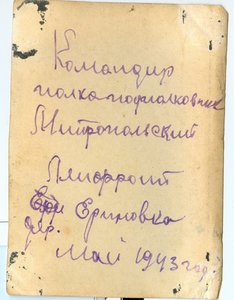 Командир
полка подполковник
Митропольский
Ленфронт
Ериновка
дер.
Май 1943 год.